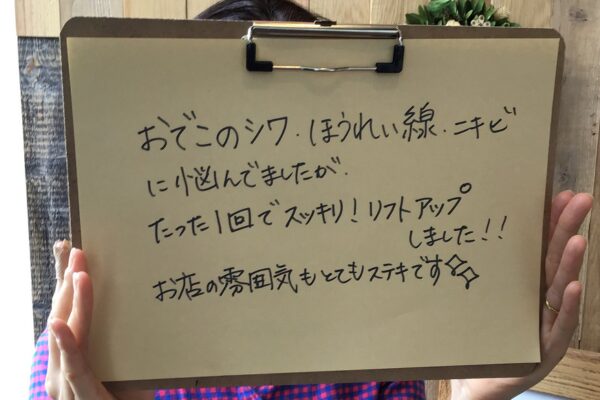 おでこのシワ・ほうれい線・ニキビ
に悩んでましたが、
たった1回でスッキリ!リフトアップ
しました!!
お店の雰囲気もとてもステキです✨